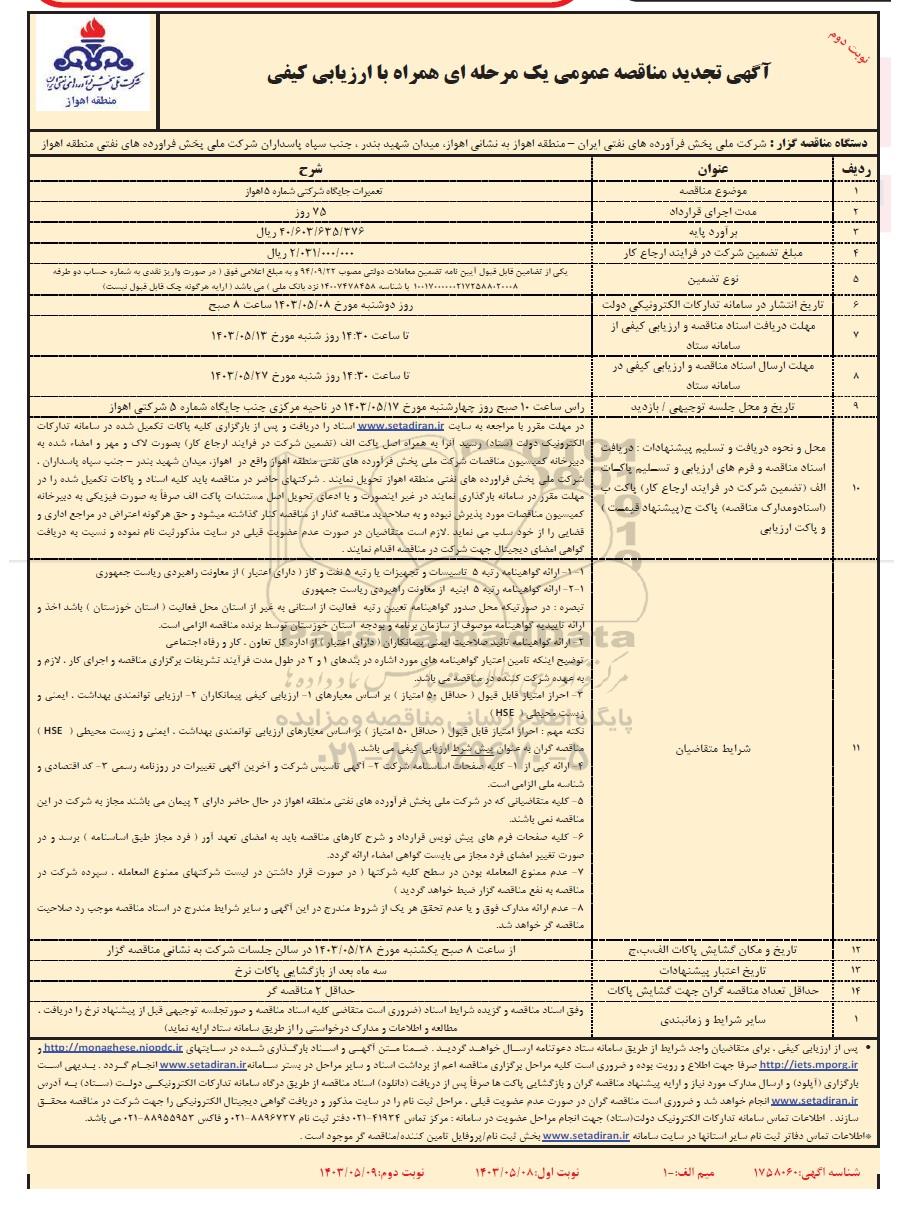 نوبت دوم
آگهی تجدید مناقصه عمومی یک مرحله ای همراه با ارزیابی کیفی
شرکت ملی پخش فرآورده‌های نفتی ایران
منطقه اهواز
دستگاه مناقصه گزار : شرکت ملی پخش فرآورده های نفتی ایران – منطقه اهواز به نشانی اهواز، میدان شهید بندر ، جنب سپاه پاسداران شرکت ملی پخش فراورده های نفتی منطقه اهواز
ردیف عنوان شرح
۱ موضوع مناقصه تعمیرات جایگاه شرکتی شماره ۵اهواز
۲ مدت اجرای قرارداد ۷۵ روز
۳ برآورد پایه ۴۰/۶۰۳/۶۳۵/۳۷۶ ریال
۴ مبلغ تضمین شرکت در فرایند ارجاع کار ۲/۰۳۱/۰۰۰/۰۰۰ ریال
۵ نوع تضمین یکی از تضامین قابل قبول آیین نامه تضمین معاملات دولتی مصوب ۹۴/۰۹/۲۲ و به مبلغ اعلامی فوق ( در صورت واریز نقدی به شماره حساب دو طرفه
با شناسه ۱۴۰۰۷۴۷۸۴۵۸ نزد بانک ملی ) می باشد ( ارایه هرگونه چک قابل قبول نیست)
۶ تاریخ انتشار در سامانه تدارکات الکترونیکی دولت روز دوشنبه مورخ ۱۴۰۳/۰۵/۰۸ ساعت ۸ صبح
۷ مهلت دریافت اسناد مناقصه و ارزیابی کیفی از
سامانه ستاد تا ساعت ۱۴:۳۰ روز شنبه مورخ ۱۴۰۳/۰۵/۱۳
۸ مهلت ارسال اسناد مناقصه و ارزیابی کیفی در
سامانه ستاد تا ساعت ۱۴:۳۰ روز شنبه مورخ ۱۴۰۳/۰۵/۲۷
۹ تاریخ و محل جلسه توجیهی / بازدید راس ساعت ۱۰ صبح روز چهارشنبه مورخ ۱۴۰۳/۰۵/۱۷ در ناحیه مرکزی جنب جایگاه شماره ۵ شرکتی اهواز
۱۰ محل و نحوه دریافت و تسلیم پیشنهادات : دریافت
اسناد مناقصه و فرم های ارزیابی و تسلیم پاکات
الف (تضمین شرکت در فرایند ارجاع کار) پاکت ب
(اسنادومدارک مناقصه) پاکت ج(پیشنهاد قیمت )
و پاکت ارزیابی
در مهلت مقرر با مراجعه به سایت www.setadiran.ir اسناد را دریافت و پس از بارگزاری کلیه پاکات تکمیل شده در سامانه تدارکات
الکترونیک دولت (ستاد) رسید آنرا به همراه اصل پاکت الف (تضمین شرکت در فرایند ارجاع کار) بصورت لاک و مهر و امضاء شده به
دبیرخانه کمیسیون مناقصات شرکت ملی پخش فرآورده های نفتی منطقه اهواز واقع در اهواز، میدان شهید بندر – جنب سپاه پاسداران ،
شرکت ملی پخش فراورده های نفتی منطقه اهواز تحویل نمایند . شرکتهای حاضر در مناقصه باید کلیه اسناد و پاکات تکمیل شده را در
مهلت مقرر در سامانه بارگذاری نمایند در غیر اینصورت و یا ادعای تحویل اصل مستندات پاکت الف صرفاً به صورت فیزیکی به دبیرخانه
کمیسیون مناقصات مورد پذیرش نبوده و به صلاحدید مناقصه گذار از مناقصه کنار گذاشته میشود و حق هرگونه اعتراض در مراجع اداری و
قضایی را از خود سلب می نماید .لازم است متقاضیان در صورت عدم عضویت قبلی در سایت مذکورثبت نام نموده و نسبت به دریافت
گواهی امضای دیجیتال جهت شرکت در مناقصه اقدام نمایند .
۱۱ شرایط متقاضیان
۱-۱- ارائه گواهینامه رتبه ۵ تاسیسات و تجهیزات یا رتبه ۵ نفت و گاز ( دارای اعتبار ) از معاونت راهبردی ریاست جمهوری
۲-۱- ارائه گواهینامه رتبه ۵ ابنیه از معاونت راهبردی ریاست جمهوری
تبصره : در صورتیکه محل صدور گواهینامه تعیین رتبه فعالیت از استانی به غیر از استان محل فعالیت ( استان خوزستان ) باشد اخذ و
ارائه تاییدیه گواهینامه موصوف از سازمان برنامه و بودجه استان خوزستان توسط برنده مناقصه الزامی است.
۲- ارائه گواهینامه تائید صلاحیت ایمنی پیمانکاران ( دارای اعتبار ) از اداره کل تعاون ، کار و رفاه اجتماعی
توضیح اینکه تامین اعتبار گواهینامه های مورد اشاره در بندهای ۱ و ۲ در طول مدت فرآیند تشریفات برگزاری مناقصه و اجرای کار ، لازم و
به عهده شرکت کننده در مناقصه می باشد.
۳- احراز امتیاز قابل قبول ( حداقل ۵۰ امتیاز ) بر اساس معیارهای ۱- ارزیابی کیفی پیمانکاران ۲- ارزیابی توانمندی بهداشت ، ایمنی و
زیست محیطی ( HSE )
نکته مهم : احراز امتیاز قابل قبول ( حداقل ۵۰ امتیاز ) بر اساس معیارهای ارزیابی توانمندی بهداشت ، ایمنی و زیست محیطی ( HSE )
مناقصه گران به عنوان پیش شرط ارزیابی کیفی می باشد.
۴- ارائه کپی از ۱- کلیه صفحات اساسنامه شرکت ۲- آگهی تاسیس شرکت و آخرین آگهی تغییرات در روزنامه رسمی ۳- کد اقتصادی و
شناسه ملی الزامی است.
۵- کلیه متقاضیانی که در شرکت ملی پخش فرآورده های نفتی منطقه اهواز در حال حاضر دارای ۲ پیمان می باشند مجاز به شرکت در این
مناقصه نمی باشند.
۶- کلیه صفحات فرم های پیش نویس قرارداد و شرح کارهای مناقصه باید به امضای تعهد آور ( فرد مجاز طبق اساسنامه ) برسد و در
صورت تغییر امضای فرد مجاز می بایست گواهی امضاء ارائه گردد.
۷- عدم ممنوع المعامله بودن در سطح کلیه شرکتها ( در صورت قرار داشتن در لیست شرکتهای ممنوع المعامله ، سپرده شرکت در
مناقصه به نفع مناقصه گزار ضبط خواهد گردید )
۸- عدم ارائه مدارک فوق و یا عدم تحقق هر یک از شروط مندرج در این آگهی و سایر شرایط مندرج در اسناد مناقصه موجب رد صلاحیت
مناقصه گر خواهد شد.
۱۲ تاریخ و مکان گشایش پاکات الف،ب،ج از ساعت ۸ صبح یکشنبه مورخ ۱۴۰۳/۰۵/۲۸ در سالن جلسات شرکت به نشانی مناقصه گزار
۱۳ تاریخ اعتبار پیشنهادات سه ماه بعد از بازگشایی پاکات نرخ
۱۴ حداقل تعداد مناقصه گران جهت گشایش پاکات حداقل ۲ مناقصه گر
۱ سایر شرایط و زمانبندی وفق اسناد مناقصه و گزیده شرایط اسناد (ضروری است متقاضی کلیه اسناد مناقصه و صورتجلسه توجیهی قبل از پیشنهاد نرخ را دریافت ،
مطالعه و اطلاعات و مدارک درخواستی را از طریق سامانه ستاد ارایه نماید)
• پس از ارزیابی کیفی ، برای متقاضیان واجد شرایط از طریق سامانه ستاد دعوتنامه ارسال خواهد گردید . ضمنا متن آگهی و اسناد بارگذاری شده در سایتهای http://monaghese.niopdc.ir و
http://iets.mporg.ir صرفا جهت اطلاع و رویت بوده و ضروری است کلیه مراحل برگزاری مناقصه اعم از برداشت اسناد و سایر مراحل در بستر سامانه www.setadiran.ir انجام گردد . بدیهی است
بارگزاری (آپلود) و ارسال مدارک مورد نیاز و ارایه پیشنهاد مناقصه گران و بازگشایی پاکت ها صرفاً پس از دریافت (دانلود) اسناد مناقصه از طریق درگاه سامانه تدارکات الکترونیکی دولت (ستاد) به آدرس
www.setadiran.ir انجام خواهد شد و ضروری است مناقصه گران در صورت عدم عضویت قبلی ، مراحل ثبت نام را در سایت مذکور و دریافت گواهی دیجیتال الکترونیکی را جهت شرکت در مناقصه محقق
سازند . اطلاعات تماس سامانه تدارکات الکترونیک دولت(ستاد) جهت انجام مراحل عضویت در سامانه : مرکز تماس ۴۱۹۳۴-۰۲۱ دفتر ثبت نام ۸۸۹۶۷۳۷-۰۲۱ و فاکس ۸۸۹۵۵۹۵۳-۰۲۱ می باشد.
*اطلاعات تماس دفاتر ثبت نام سایر استانها در سایت سامانه www.setadiran.ir بخش ثبت نام/پروفایل تامین کننده/مناقصه گر موجود است .
شناسه اگهی:۱۷۵۸۰۶۰ میم الف:-۱ نوبت اول:۱۴۰۳/۰۵/۰۸ نوبت دوم:۱۴۰۳/۰۵/۰۹
ParsNamadData
پایگاه اطلاع رسانی مناقصه و مزایده